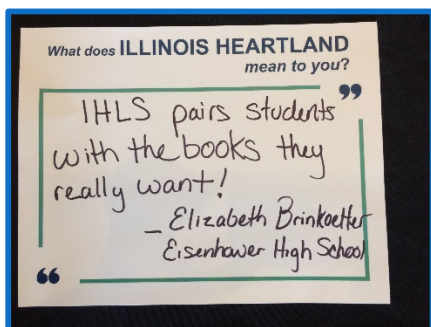 What does ILLINOIS HEARTLAND
mean to you?
”
IHLS pairs students
with the books they
really want!
_ Elizabeth Brinkoetter
Eisenhower High School
“